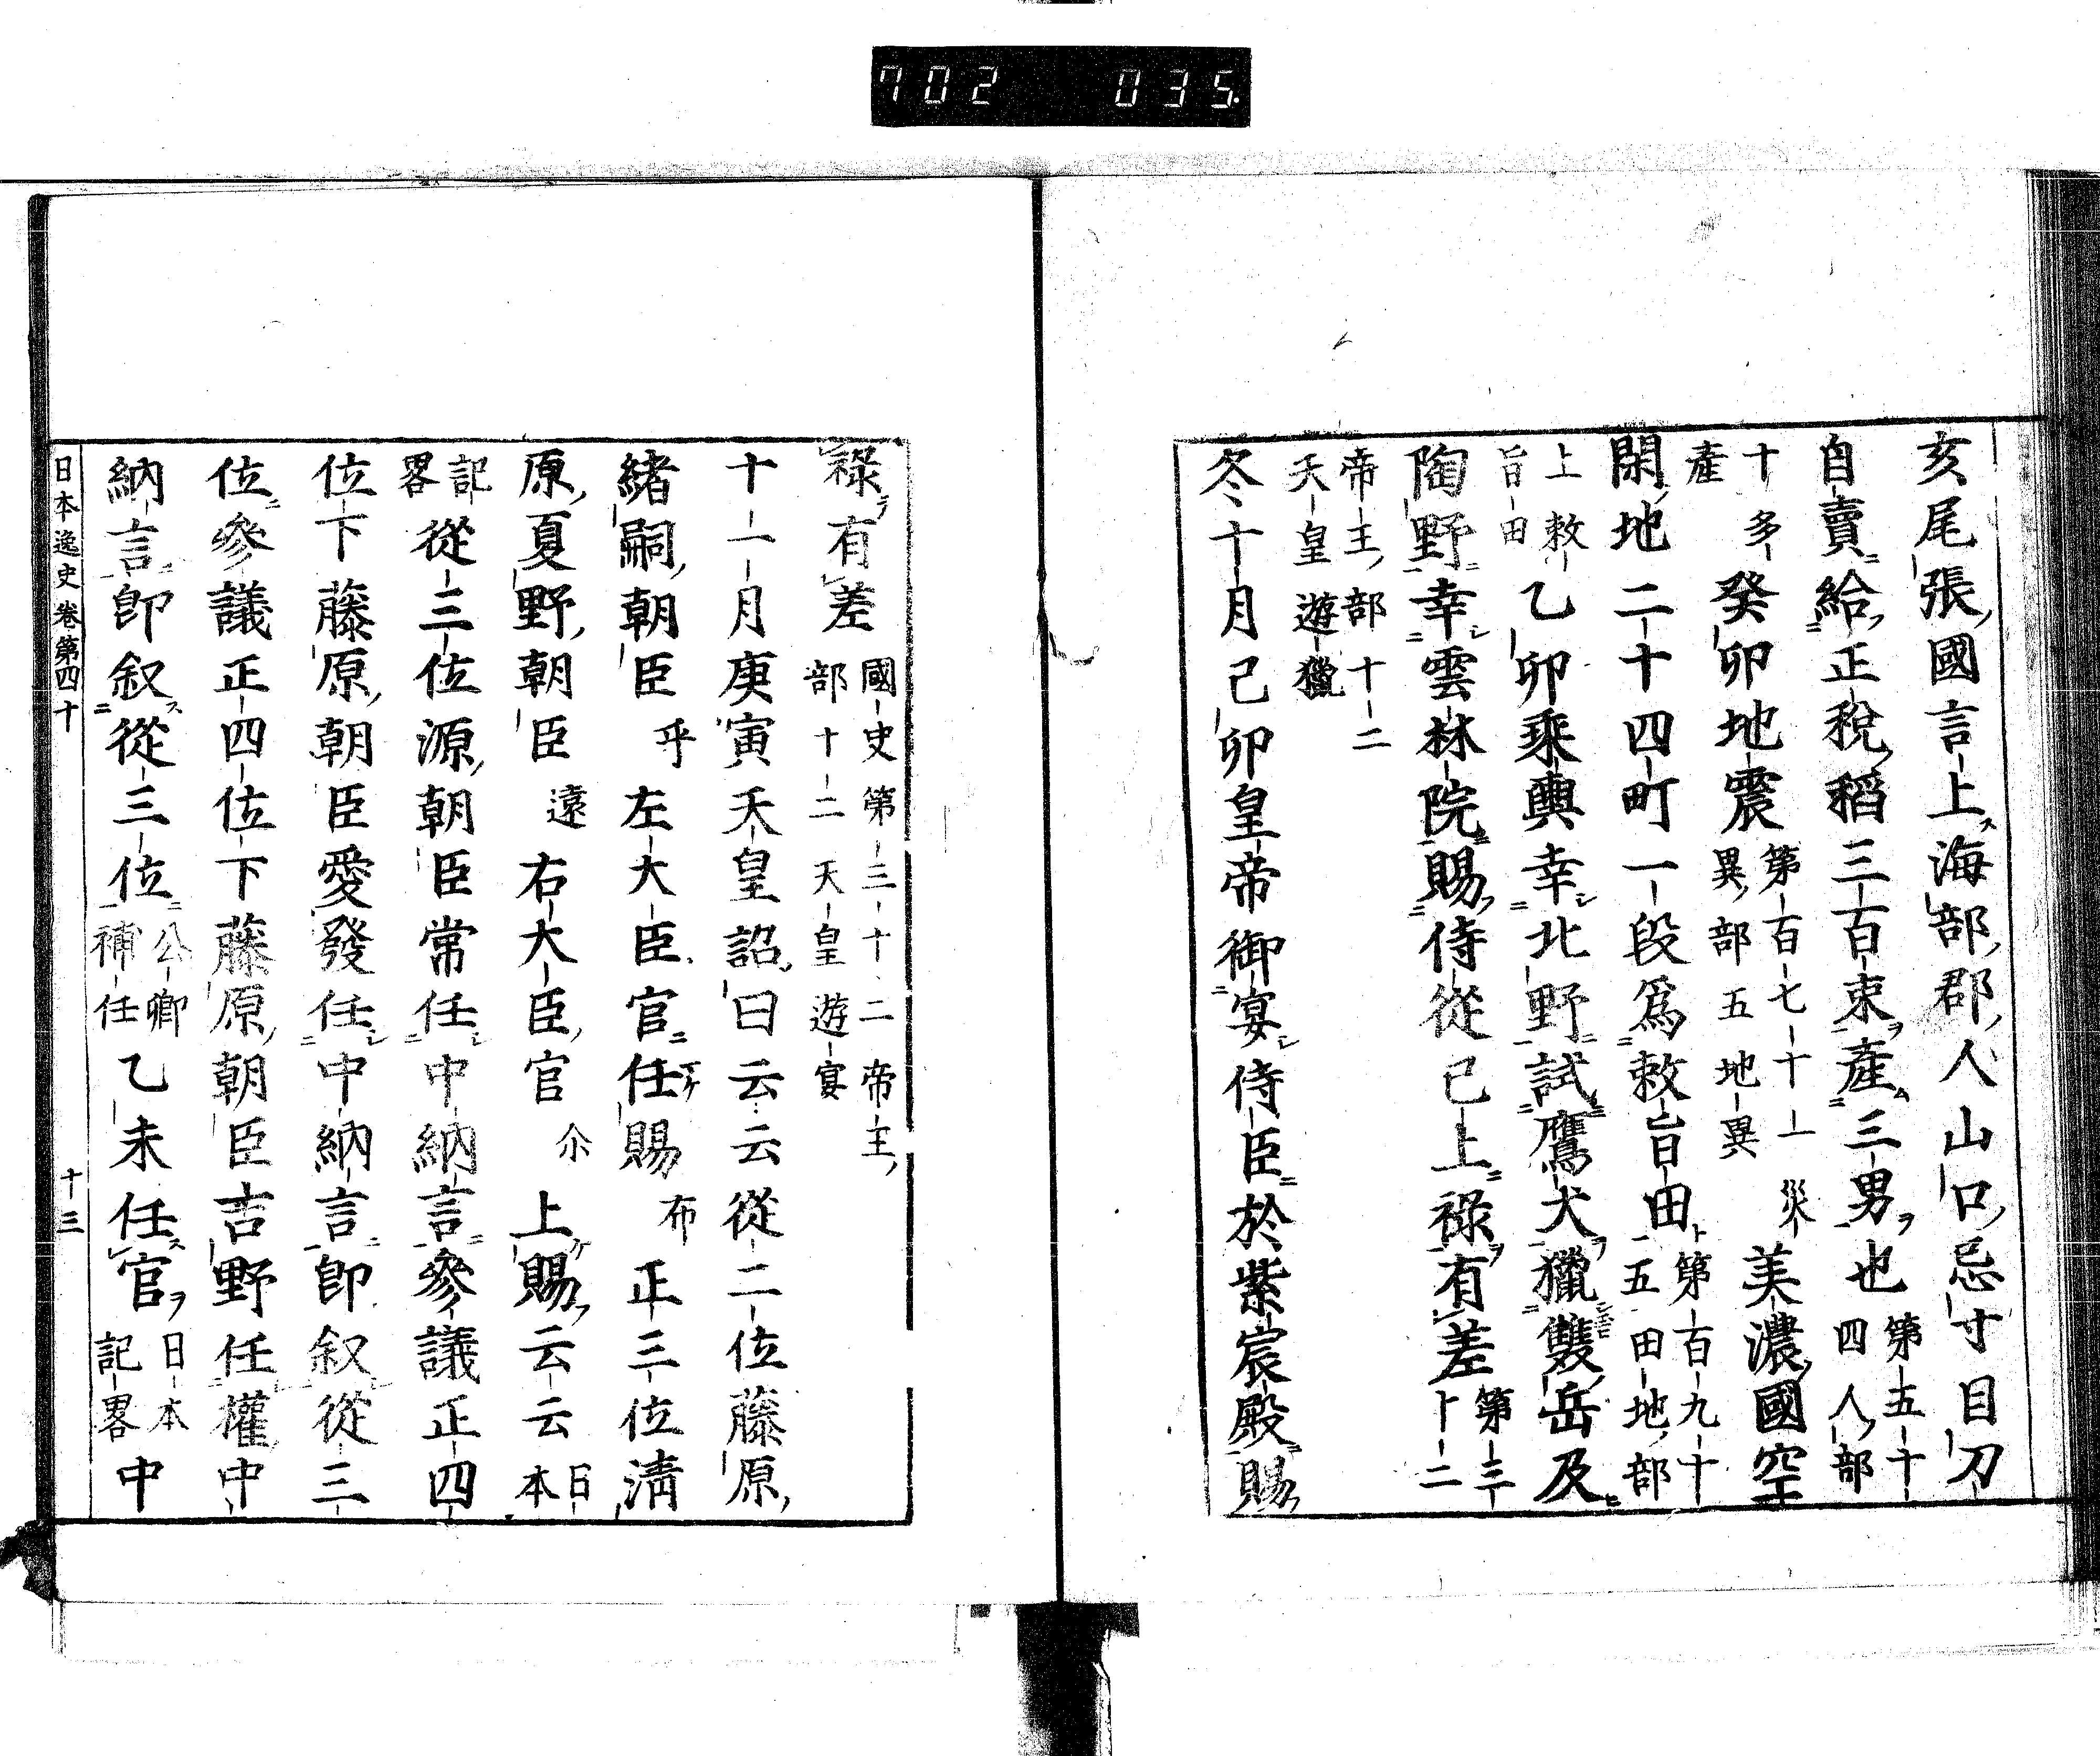 702 035
亥尾張國言上海部郡人山口忌寸目刀
自賣給正稅稻三百束產三男也第五十四人部
十多產癸卯地震第百七十一災異部五地異美濃國空
閑地二十四町一段爲敕旨田第百九十五田地部
上敕旨田乙卯乘輿幸北野試鷹犬獵雙岳及
陶野幸雲林院賜侍從已上祿有差第三十二
帝王部十二天皇遊獵
冬十月己卯皇帝御宴侍臣於紫宸殿賜
祿有差國史第三十二帝王部十二天皇遊宴
十一月庚寅天皇詔曰云云從二位藤原
緒嗣朝臣乎左大臣官任賜布正三位淸
原夏野朝臣遠右大臣官尒上賜云云日本
記畧從三位源朝臣常任中納言參議正四
位下藤原朝臣愛發任中納言卽叙從三
位參議正四位下藤原朝臣吉野任權中
納言卽叙從三位公卿補任乙未任官日本記畧中
日本逸史卷第四十 十三